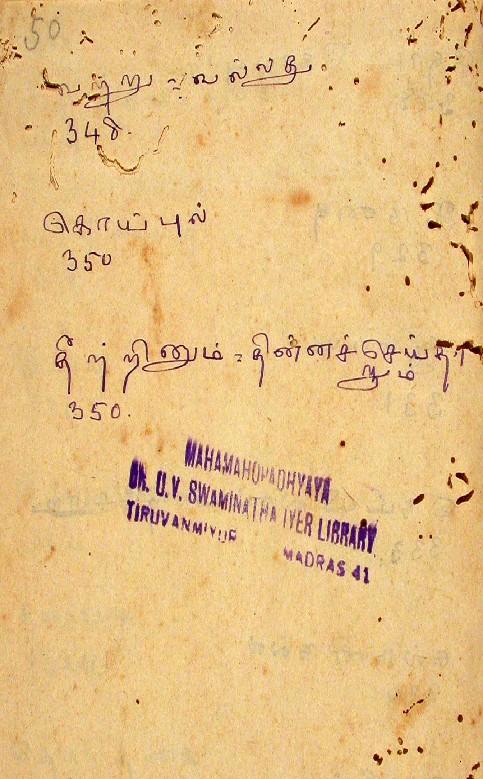 50
வற்று = வல்லது
348.
கொய்புல்
350
தீற்றினும் = தின்னச்செய்தா
லும்
350.
MAHAMAHOPADHYAYA
DR. U.V. SWAMINATHA IYER LIBRARY
TIRUVANMIYUR MADRAS 41